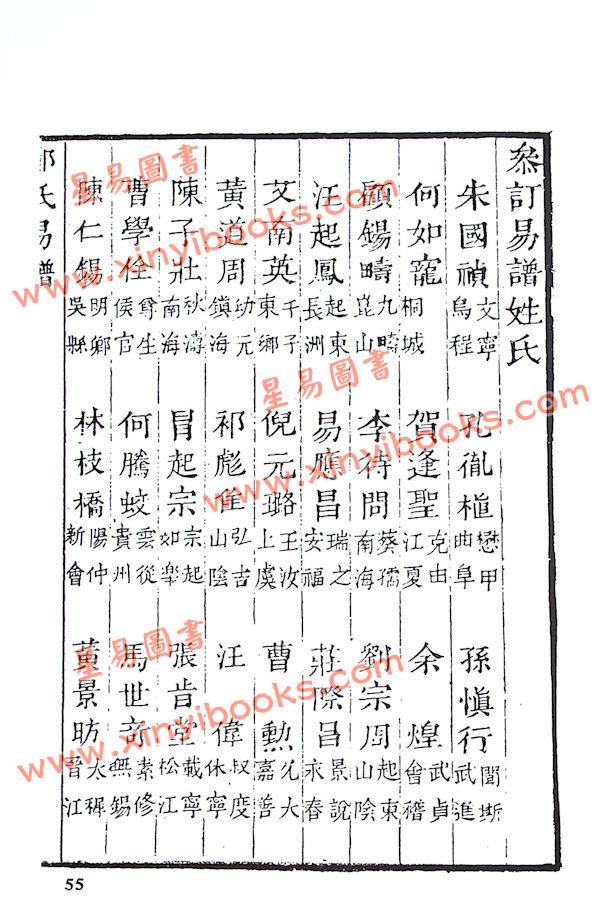 叅訂易譜姓氏
朱國禎 文寧 烏程 孔胤植 懋甲 曲阜 孫慎行 聞斯 武進
何如寵 桐城 賀逢聖 克由 江夏 余煌 武貞 會稽
顧錫疇 九疇 崑山 李待問 葵孺 南海 劉宗周 起東 山陰
汪起鳳 起東 長洲 易應昌 瑞之 安福 莊際昌 景說 永春
艾南英 千子 東鄉 倪元璐 玉汝 上虞 曹勲 允大 嘉善
黃道周 幼元 鎮海 祁彪佳 弘吉 山陰 汪偉 叔度 休寧
陳子壯 秋濤 南海 冒起宗 宗起 如皋 張肯堂 載寧 松江
曹學佺 尊生 侯官 何騰蛟 雲從 貴州 馬世奇 素修 無錫
陳仁錫 明卿 吳縣 林枝橋 陽仲 新會 黃景昉 太穉 晉江
氏易譜
55
星易圖書
www.xinyibooks.com
星易圖書
www.xinyibooks.com
星易圖書
www.xinyibooks.com